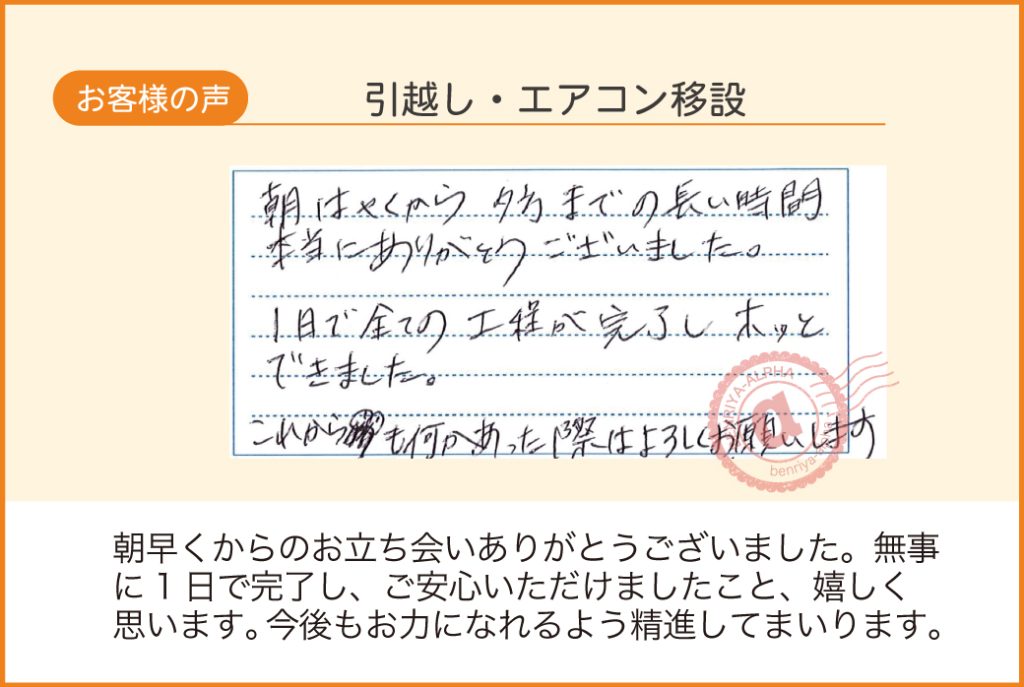 お客様の声
引越し・エアコン移設
朝はやくから 夕方までの長い時間
本当にありがとうございました。
1日で全ての工程が完了しホッと
できました。
これからも何かあった際はよろしくお願いします
BENRIYA-ALPHA
a
benriya-a
朝早くからのお立ち会いありがとうございました。無事
に1日で完了し、ご安心いただけましたこと、嬉しく
思います。今後もお力になれるよう精進してまいります。